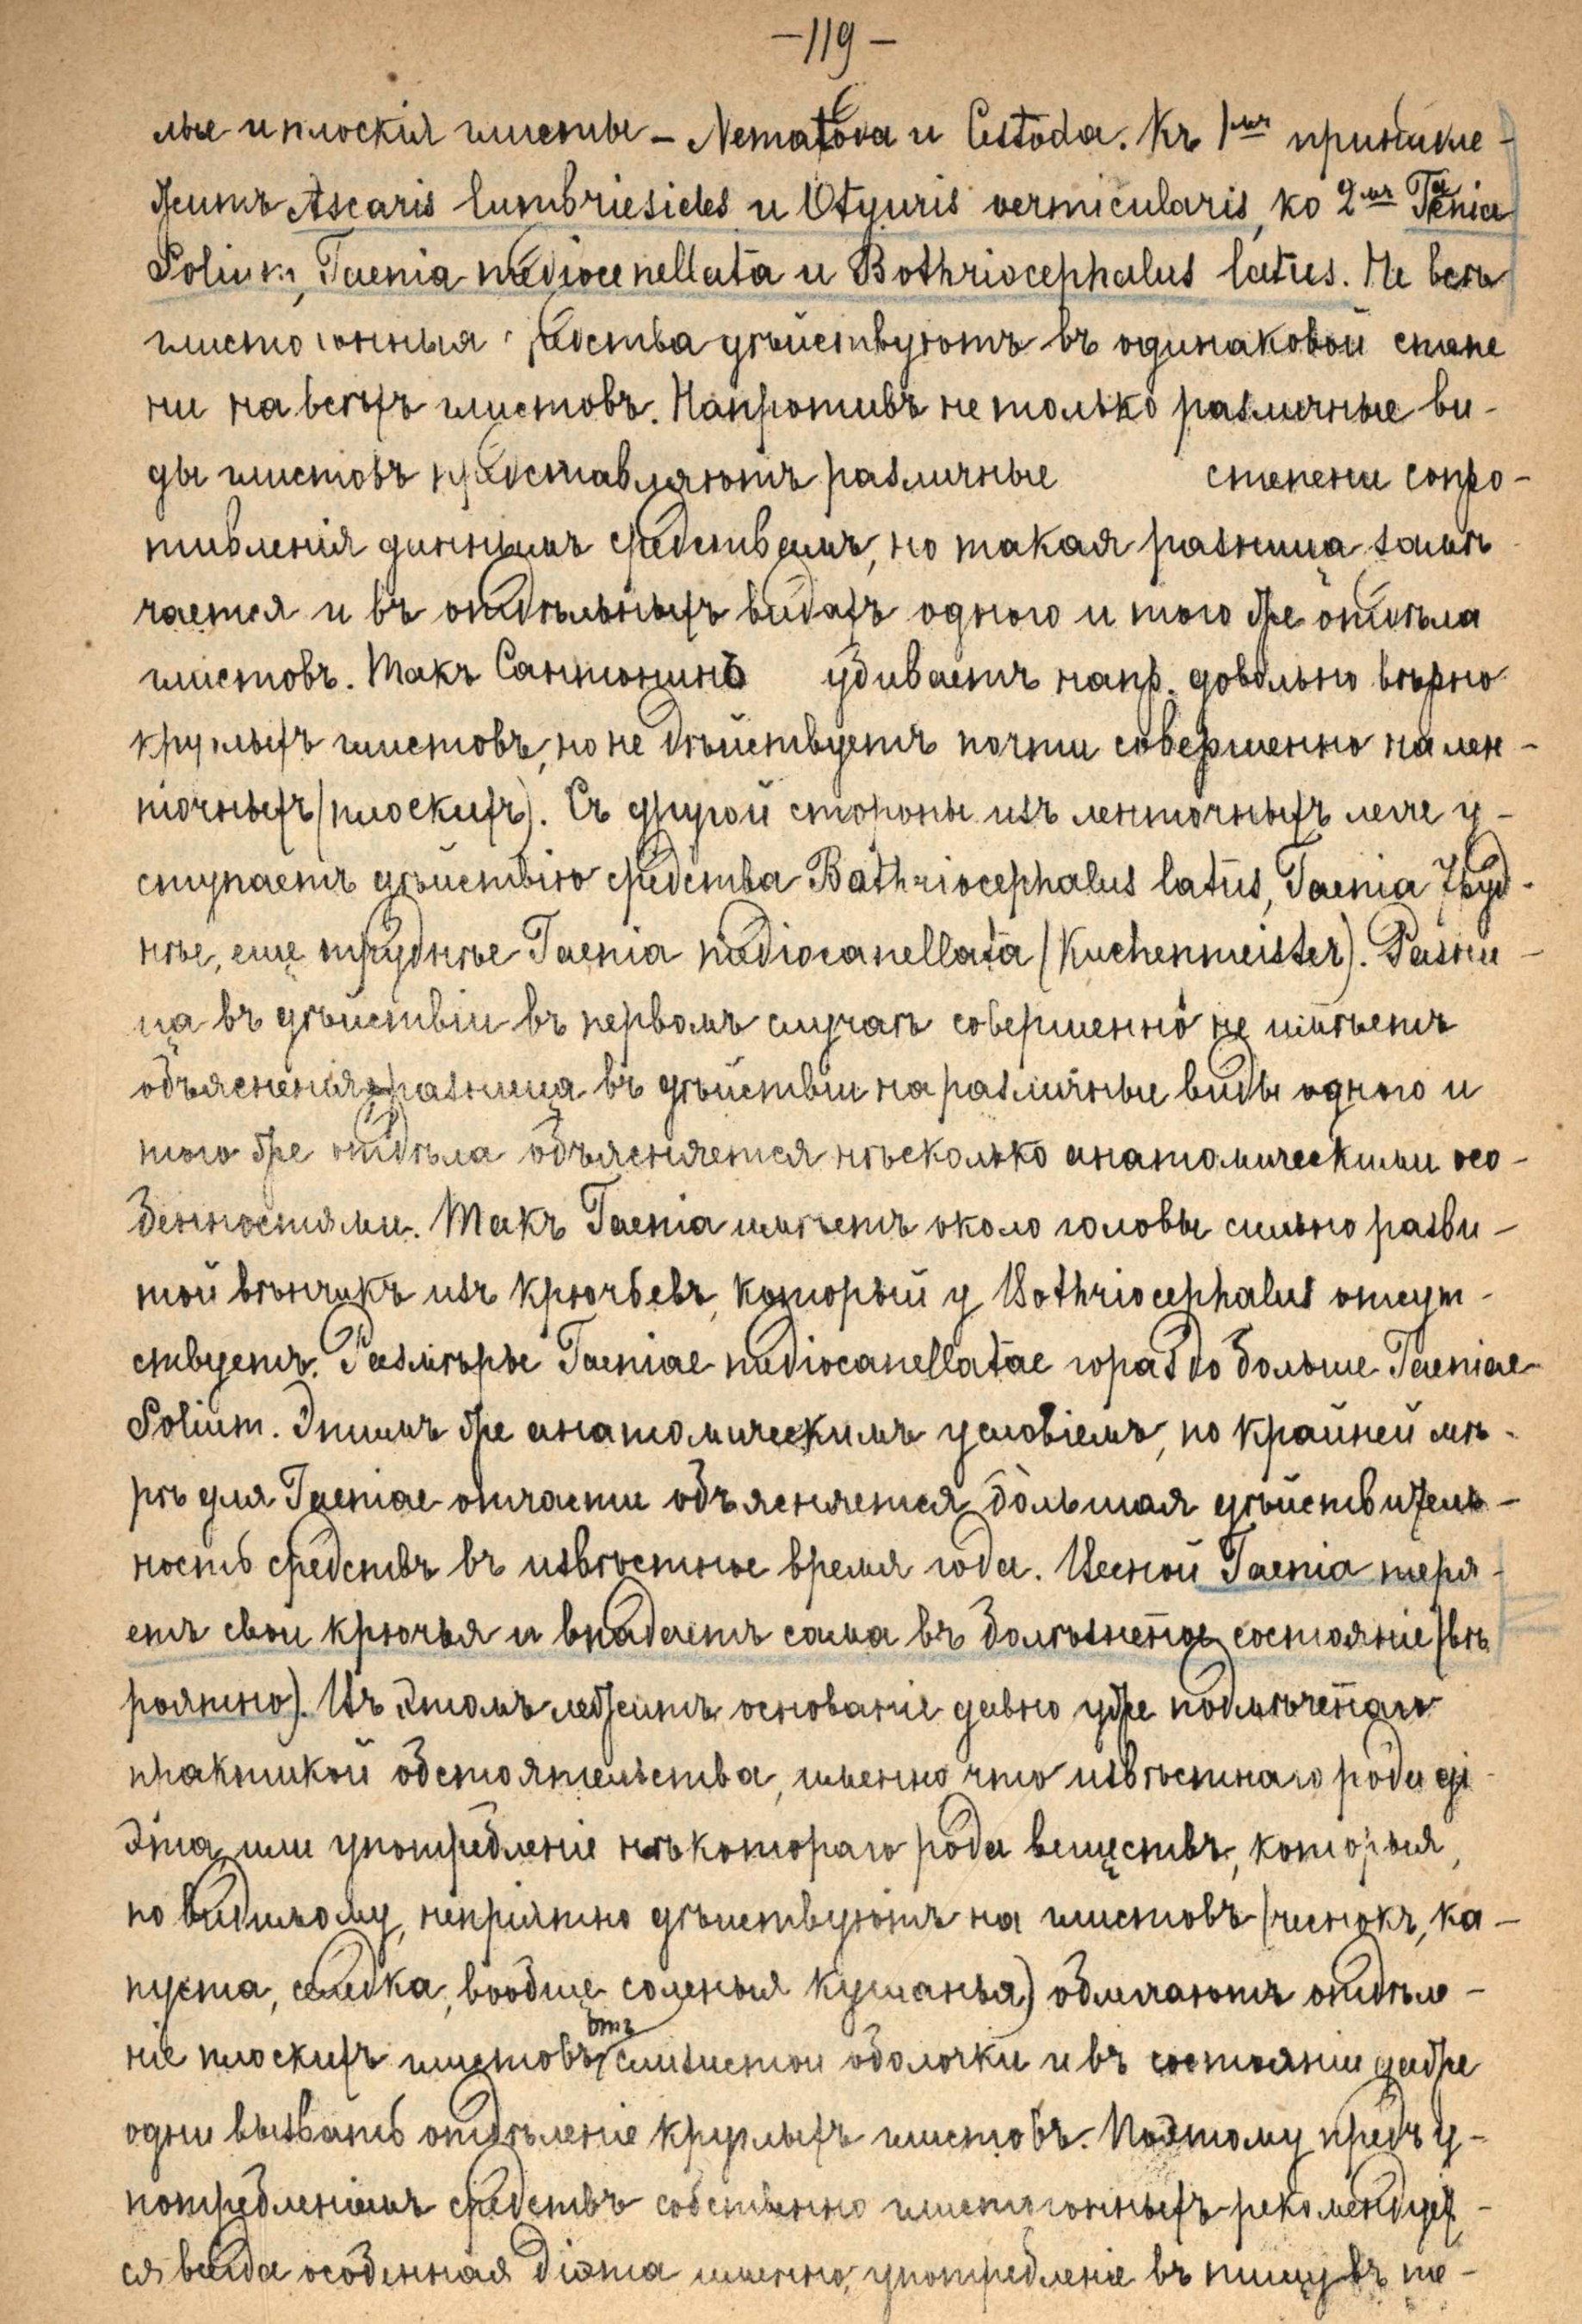 -119-
лые и плоскія глисты - Nematoda и Cestoda. Къ 1мъ принадле-
житъ Ascaris lumbriesides и Oxyuris vermicularis, ко 2мъ Taenia
Solium, Taenia mediocanellata и Bothriocephalus latus. Не всѣ
глистогонныя средства дѣйствуютъ въ одинаковой степе
ни на всѣхъ глистовъ. Напротивъ не только различные ви-
ды глистовъ представляютъ различные степени сопро-
тивленія даннымъ средствамъ, но такая разница замѣ
чается и въ отдѣльныхъ видахъ одного и того же отдѣла
глистовъ. Такъ Сантонинъ убиваетъ напр. довольно вѣрно
круглыхъ глистовъ, но не дѣйствуетъ почти совершенно на лен-
точныхъ (плоскихъ). Съ другой стороны изъ ленточныхъ легче у-
ступаетъ дѣйствію средства Bothriocephalus latus, Taenia труд-
нѣе, еще труднѣе Taenia mediocanellata (Kuchenmeister). Разни-
ца въ дѣйствіи въ первомъ случаѣ совершенно не имѣетъ
объясненія, разница въ дѣйствіи на различные виды одного и
того же отдѣла объясняется нѣсколько анатомическими осо-
бенностями. Такъ Taenia имѣетъ около головы сильно разви-
той вѣнчикъ изъ крючьевъ, который у Bothriocephalus отсут-
ствуетъ. Размѣры Taeniae mediocanellatae гораздо больше Taeniae
Solium. Этимъ же анатомическимъ условіемъ, по крайней мѣ-
рѣ для Taeniae отчасти объясняется большая дѣйствитель-
ность средствъ въ извѣстное время года. Весной Taenia теря-
етъ свои крючья и впадаетъ сама въ болѣзненное состояніе (вѣ
роятно). Въ этомъ лежитъ основаніе давно уже подмѣченнаго
практикой обстоятельства, именно что извѣстнаго рода ді
эта или употребленіе нѣкотораго рода веществъ, которыя,
по видимому, непріятно дѣйствуютъ на глистовъ (чеснокъ, ка-
пуста, селедка, вообще соленыя кушанья) облегчаютъ отдѣле-
ніе плоскихъ глистовъ отъ слизистой оболочки и въ состояніи даже
одни вызвать отдѣленіе круглыхъ глистовъ. Поэтому предъ у-
потребленіемъ средствъ собственно глистогонныхъ рекомендует-
ся всегда особенная діэта именно, употребленіе въ пищу въ те-